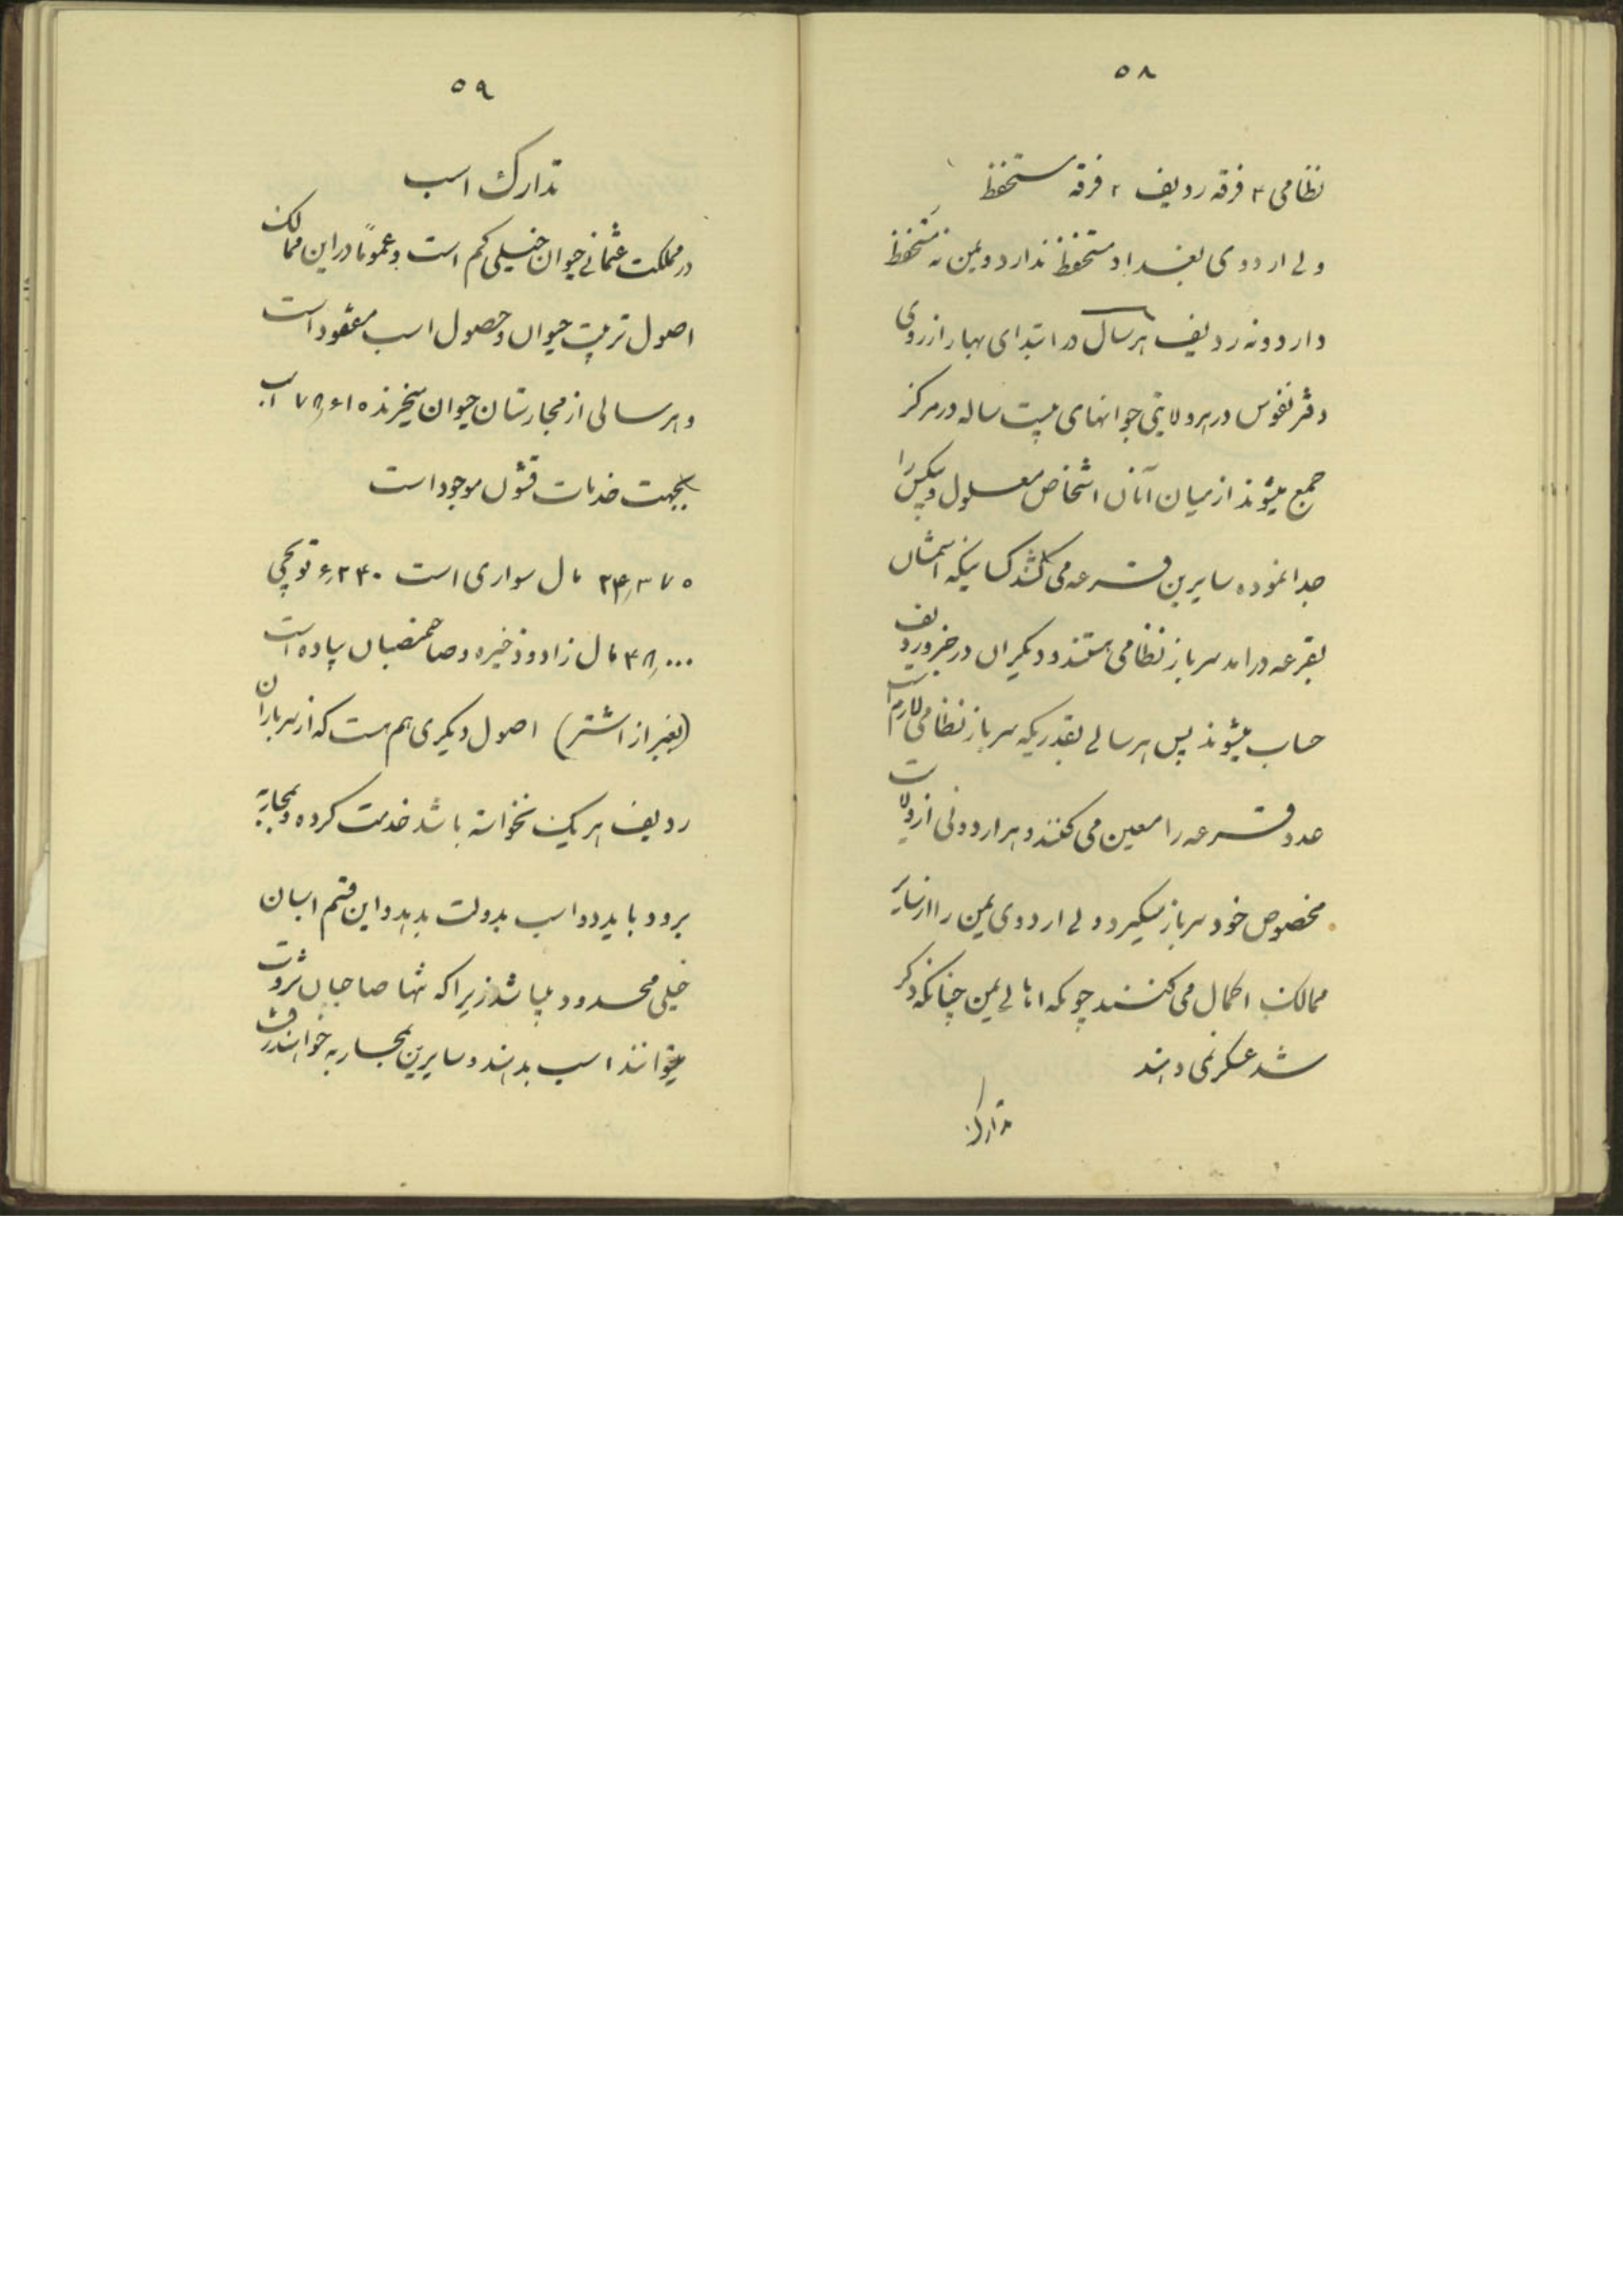 ۵۸
نظامی ۴ فرقه ردیف ۲ فرقه مستحفظ
ولی اردوی بغداد مستحفظ ندارد و یمن نه مستحفظ
دارد و نه ردیف هر سال در ابتدای بهار از روی
دفتر نفوس در هر ولایتی جوانهای بیست ساله در مرکز
جمع میشوند از میان آنان اشخاص معلول و بیکس را
جدا نموده سایرین قرعه می کشند کسانیکه اسمشان
بقرعه درامد سرباز نظامی هستند و دیگران در جزو ردیف
حساب میشوند پس هر سالی بقدریکه سرباز نظامی لازم است
عدد قرعه را معین می کنند و هر اردوئی از ولایت
مخصوص خود سرباز میگیرد ولی اردوی یمن را از سایر
ممالک اکمال می کنند چونکه اهالی یمن چنانکه ذکر
شد عسکر نمی دهند
تدارک
۵۹
تدارک اسب
در مملکت عثمانی حیوان خیلی کم است و عموماً در این ممالک
اصول تربیت حیوان و حصول اسب مفقود است
و هر سالی از مجارستان حیوان میخرند ۷۸٫۶۱۵ اسب
بجهت خدمات قشون موجود است
۲۴٫۳۷۵ مال سواری است ۶٫۲۴۰ توپچی
۴۸٫۰۰۰ مال زاد و ذخیره و صاحمنصبان پیاده است
(بغیر از اشتر) اصول دیگری هم هست که از سربازان
ردیف هر یک نخواسته باشد خدمت کرده و بمحاربه
برود باید دو اسب بدولت بدهد و این قسم اسبان
خیلی محدود میباشد زیرا که تنها صاحبان ثروت
میتوانند اسب بدهند و سایرین بمحاربه خواهند رفت